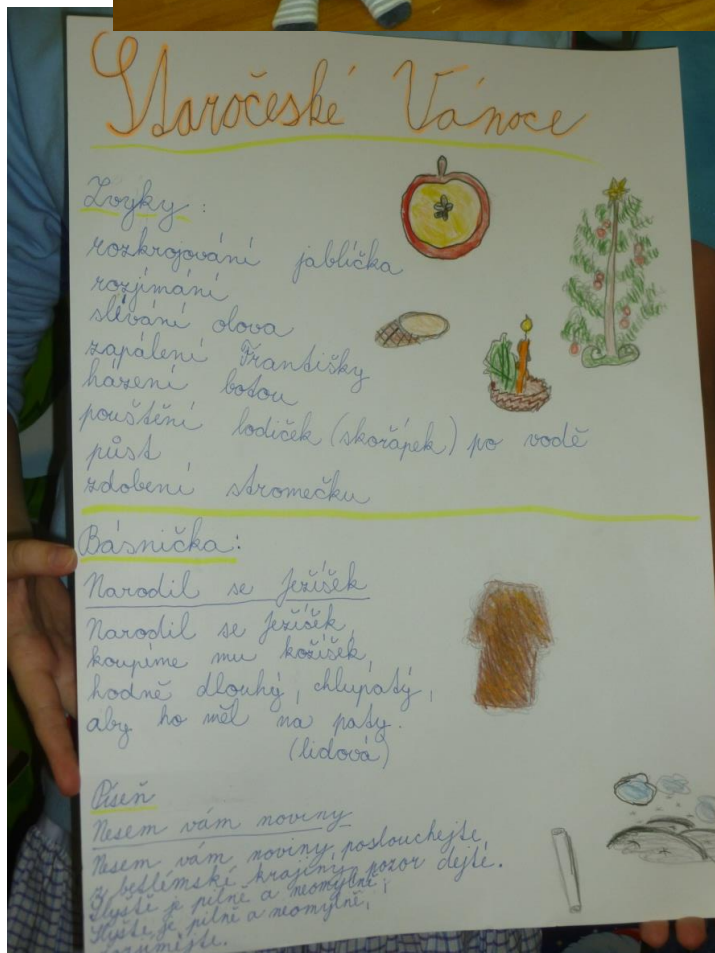 Staročeské Vánoce
Zvyky:
rozkrojování jablíčka
rozjímání
slévání olova
zapálení Františky
házení botou
pouštění lodiček (skořápek) po vodě
půst
zdobení stromečku
Básnička:
Narodil se Ježíšek
Narodil se Ježíšek,
koupíme mu kožíšek,
hodně dlouhý, chlupatý,
aby ho měl na paty.
(lidová)
Píseň
Nesem vám noviny
Nesem vám noviny poslouchejte,
z betlémské krajiny pozor dejte.
Slyšte je pilně a neomylně,
Slyšte je pilně a neomylně,
rozumějte.